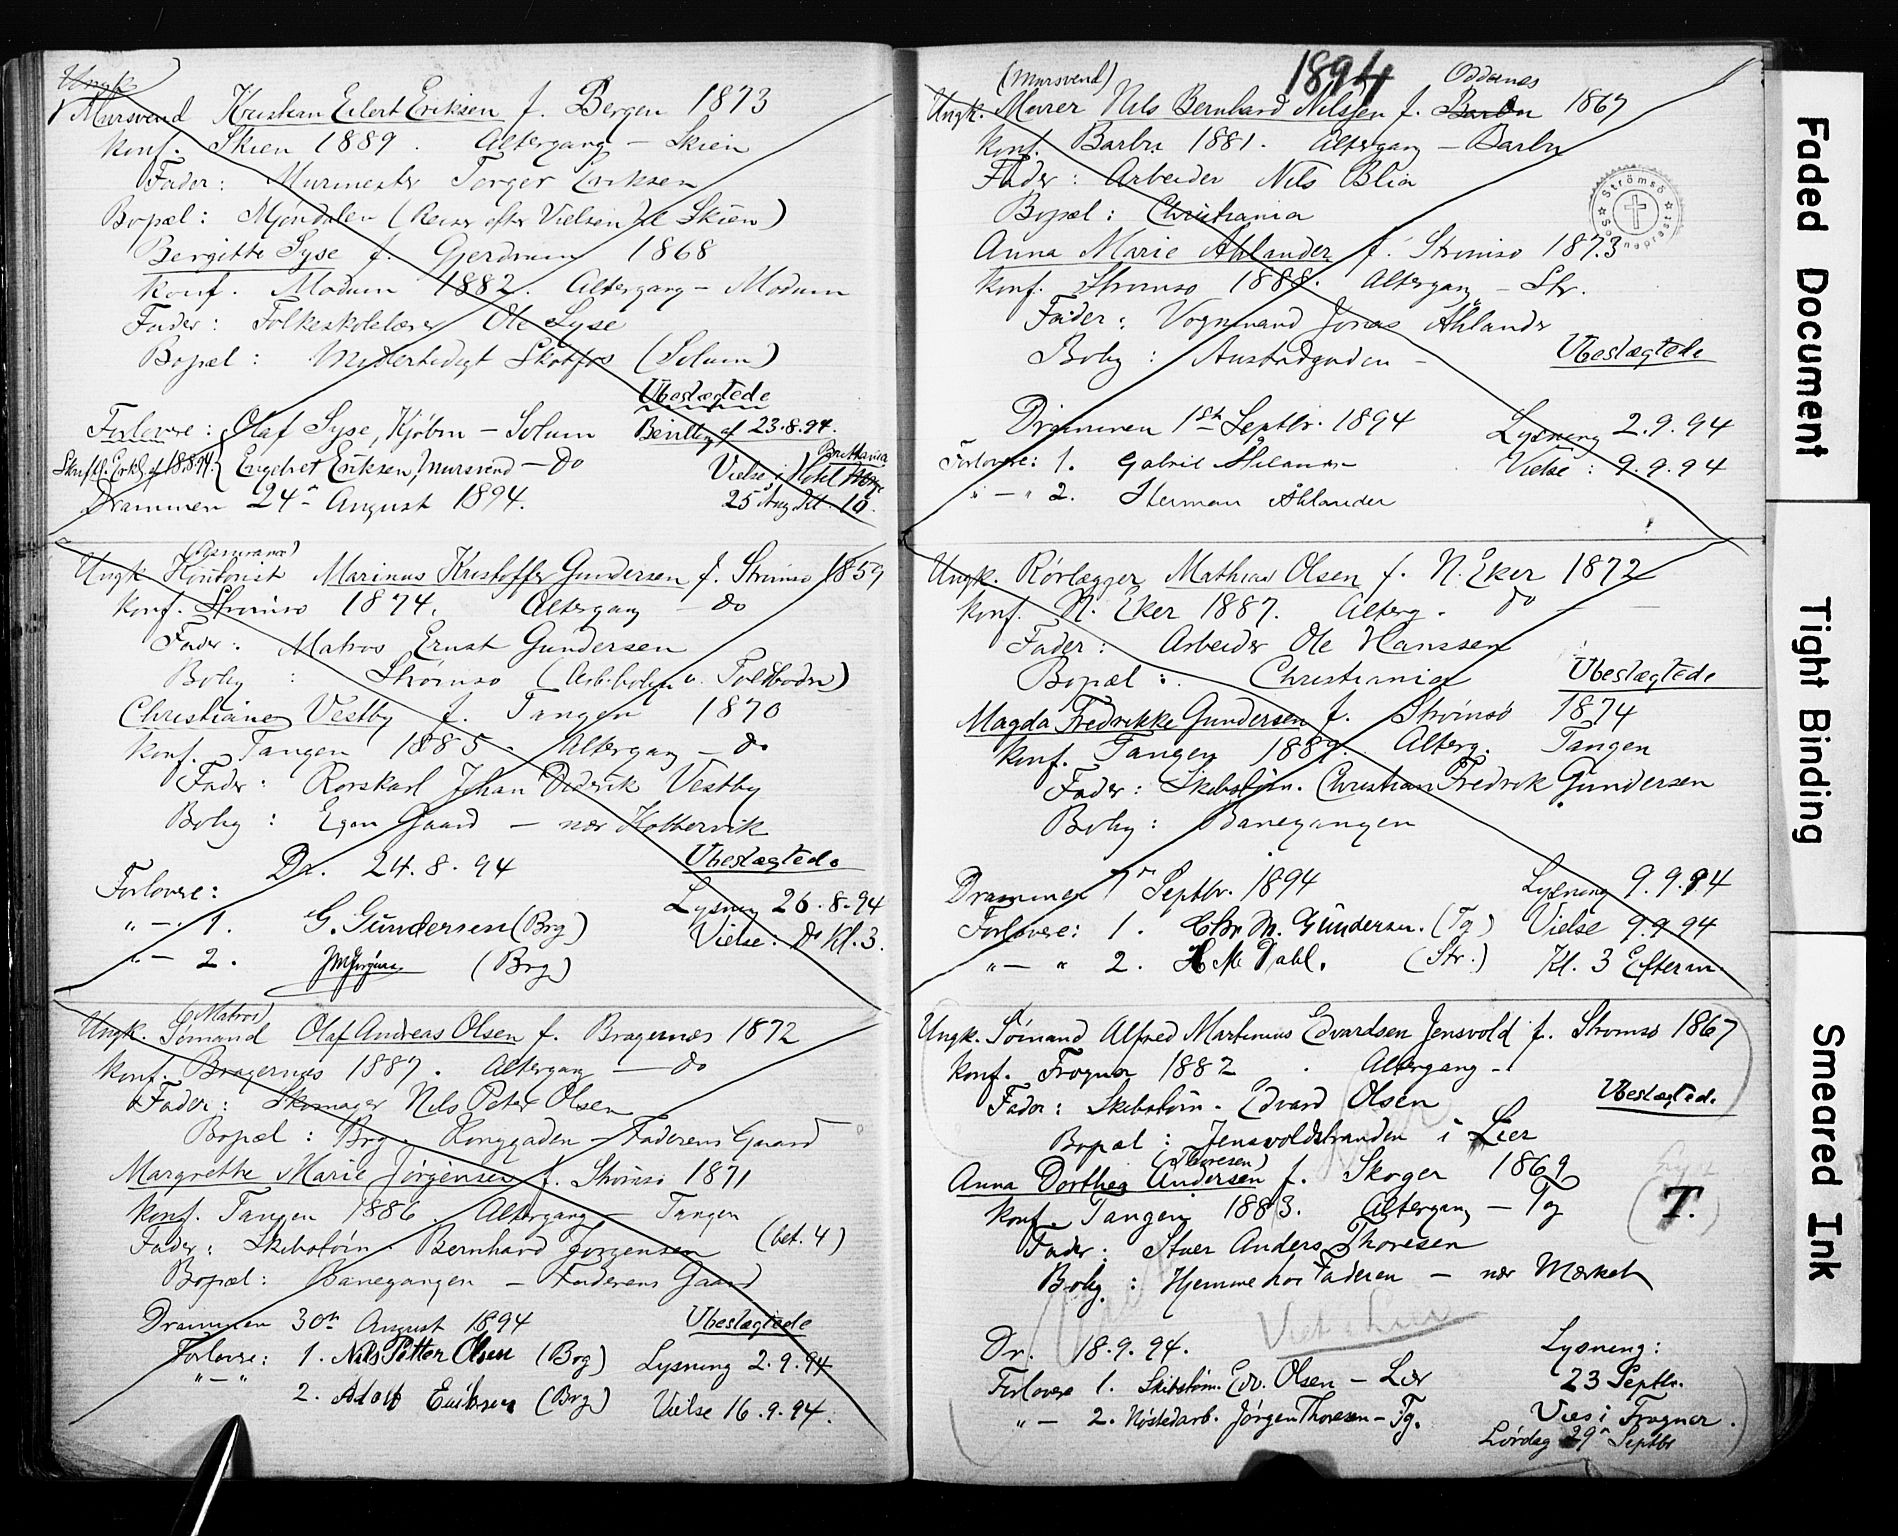 Ungk.
Mursvend Kristian Eilert Eriksen f. Bergen 1873
Konf. Skien 1889. Altergang – Skien
Fader: Murmester Torger Eriksen
Bopæl: Mjøndalen (Reiser efter Vielsen til Skien)
Bergitte Syse f. Gjerdrum 1868
Konf. Modum 1882. Altergang – Modum
Fader: Folkeskolelærer Ole Syse
Bopæl: Midlertidigt Skotfos (Solum)
Ubeslægtede
Forlovere: Olaf Syse, Kjøbm – Solum Bevilling af 23.8.94.
Skriftl. Erkl. af 18.8.94. Engebret Eriksen, mursvend – do Vielse i Hotel Britannia
Drammen 24de August 1894. 25 Aug Kl. 10.
(Assurance)
Ungk. Kontorist Marinus Kristoffer Gundersen f. Strømsø 1859
Konf. Strømsø 1874. Altergang – do
Fader: Matros Ernst Gundersen
Bolig: Strømsø (Arb.bolig v. Toldboden)
Christiane Vestby f. Tangen 1870
Konf. Tangen 1885. Altergang – do
Fader: Rorskarl Johan Didrik Vestby
Bolig: Egen Gaard – nær Kobbervik
Dr. 24.8.94 Ubeslægtede
Forlovere: Lysning 26.8.94
" – " 1. G. Gundersen (Brg) Vielse: do Kl. 3.
" – 2. (Brg)
(Matros)
Ungk. Sømand Olaf Andreas Olsen f. Bragernæs 1872
Konf. Bragernæs 1887. Altergang – do
Fader: Skomager Nils Peter Olsen
Bopæl: Brg. Konggaden – Faderens Gaard
Margrethe Marie Jørgensen f. Strømsø 1871
Konf. Tangen 1886 Altergang – Tangen
Fader: Skibstøm. Bernhard Jørgensen (bet. 4)
Bopæl: Banegangen – Faderens Gaard
Drammen 30te August 1894 Ubeslægtede
Forlovere: 1. Nils Petter Olsen (Brg) Lysning 2.9.94
" – "
2. Adolf Eriksen (Brg) Vielse 16.9.94.
1894
(Mursvend) Oddernes
Ungk. Murer Nils Bernhard Nilssen f. Barbu 1867
Konf. Barbu 1881. Altergang – Barbu
Fader: Arbeider Nils Blia
Bopæl: Christiania
Strömsö Sognepræsti
Anna Marie Ahlander f. Strømsø 1873
Konf. Strømsø 1888. Altergang – Str.
Fader: Vognmand Jonas Åhlander
Bolig: Austadgaden – Ubeslægtede
Drammen 1ste Septbr. 1894 Lysning 2.9.94
Forlovere: 1. Gabriel Vielse: 9.9.94
" – " 2. Herman Åhlander
Ungk. Rørlægger Mathias Olsen f. N. Eker 1872
Konf. N. Eker 1887. Alterg. do
Fader: Arbeider Ole Hanssen
Bopæl: Christiania Ubeslægtede
Magda Fredrikke Gundersen f. Strømsø 1874
Konf. Tangen 1889. Alterg. Tangen
Fader: Skibstøm. Christian Fredrik Gundersen
Bolig: Banegangen
Drammen 7de Septbr. 1894 Lysning 9.9.94
Forlovere: 1. Chr. M. Gundersen. (Tg) Vielse 9.9.94
" – " 2. H M Dahl. (Str.) Kl. 3 Efterm.
Ungk. Sømand Alfred Martinius Edvardsen Jensvold f. Strømsø 1867
Konf. Frogner 1882. Altergang –
Fader: Skibstøm. Edvard Olsen Ubeslægtede
Bopæl: Jensvoldstranden i Lier
(Thoresen)
Anna Dorthea Andersen f. Skoger 1869
T.
Konf. Tangen 1883. Altergang – Tg
Fader: Stuer Anders Thoresen
Bolig: Hjemme hos Faderen – nær Mærket
Viet i Lier
Dr. 18.9.94. Lysning:
Forlovere 1. Skibstøm. Edv. Olsen – Lier 23 Septbr.
" – 2. Nøstedarb. Jørgen Thoresen – Tg. Vies i Frogner.
Lørdag 29de Septbr
Faded Document
Tight Binding
Smeared Ink